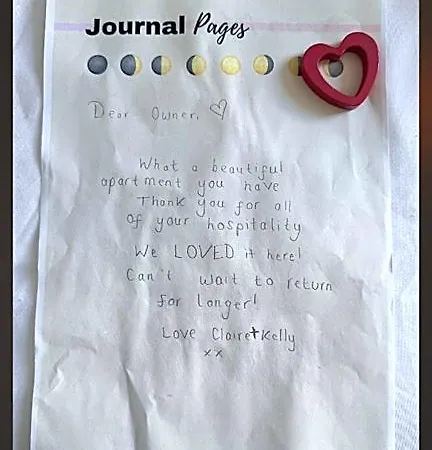 Journal Pages
Dear Owner,
What a beautiful
apartment you have
Thank you for all
of your hospitality
We LOVED it here!
Can't wait to return
for longer!
Love Claire+Kelly
xx